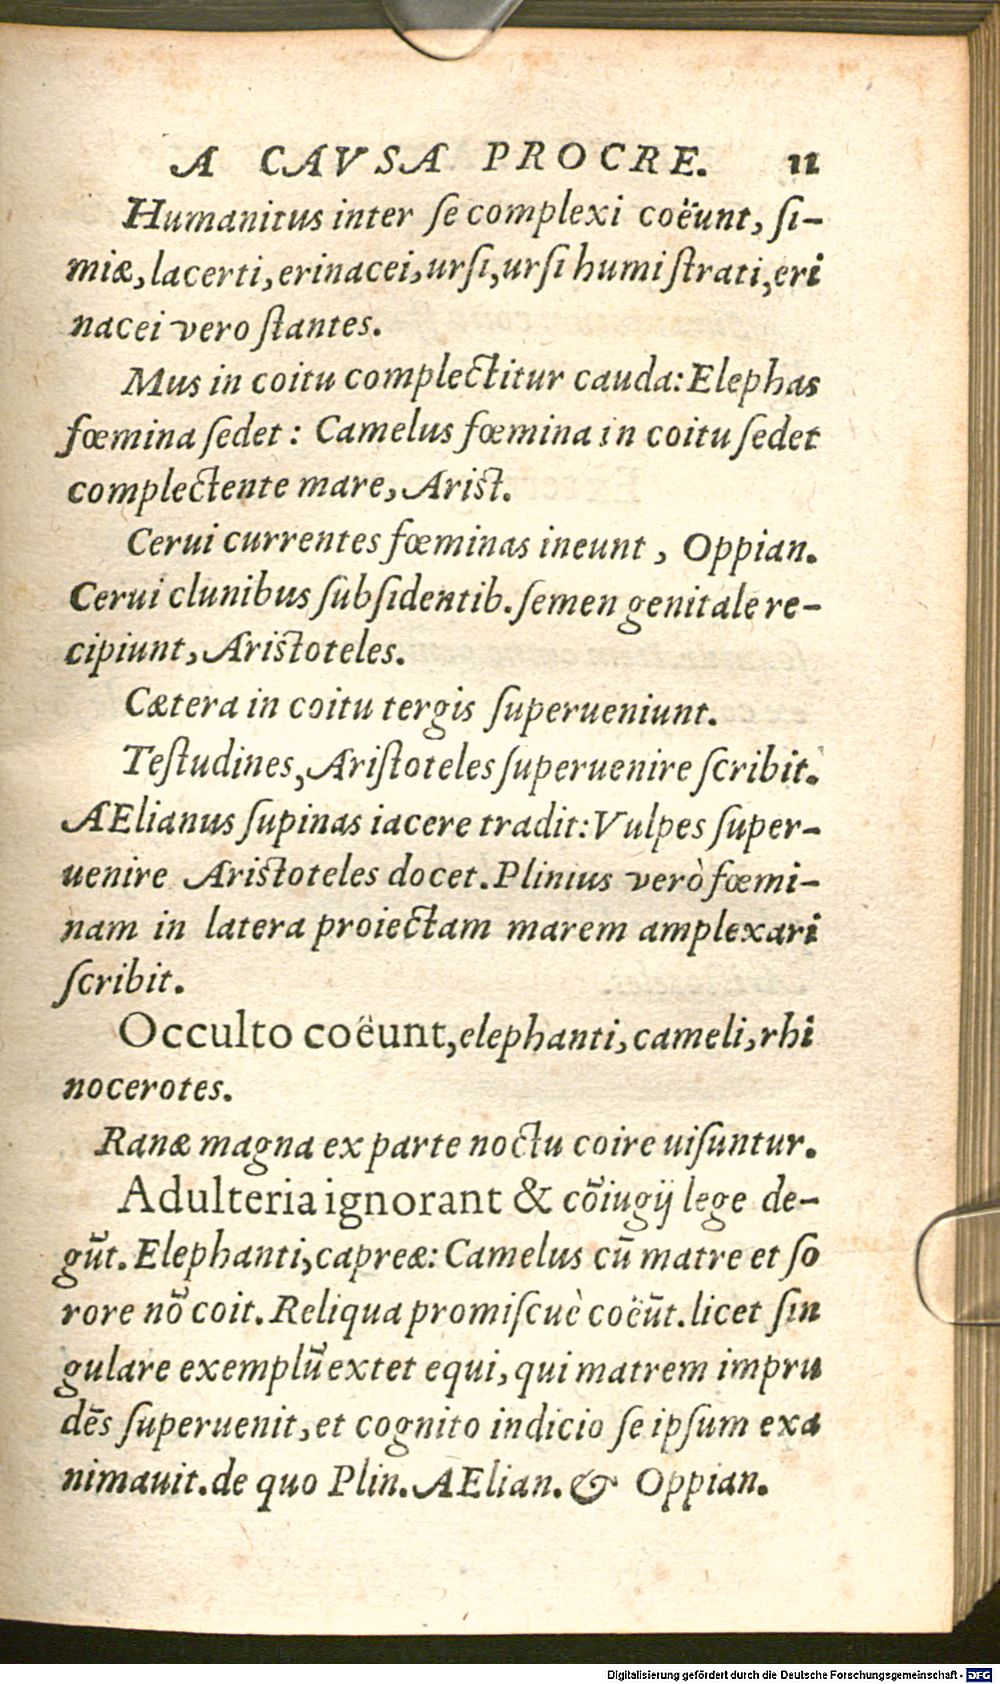 A CAVSA PROCRE. 11
Humanitus inter se complexi coëunt, si-
miæ, lacerti, erinacei, ursi, ursi humi strati, eri
nacei vero stantes.
Mus in coitu complectitur cauda: Elephas
fœmina sedet: Camelus fœmina in coitu sedet
complectente mare, Arist.
Cerui currentes fœminas ineunt, Oppian.
Cerui clunibus subsidentib. semen genitale re-
cipiunt, Aristoteles.
Cætera in coitu tergis superueniunt.
Testudines, Aristoteles superuenire scribit.
AElianus supinas iacere tradit: Vulpes super-
uenire Aristoteles docet. Plinius verò fœmi-
nam in latera proiectam marem amplexari
scribit.
Occulto coëunt, elephanti, cameli, rhi
nocerotes.
Ranæ magna ex parte noctu coire uisuntur.
Adulteria ignorant & cōiugij lege de-
gūt. Elephanti, capreæ: Camelus cū matre et so
rore nō coit. Reliqua promiscuè coëūt. licet sin
gulare exemplū extet equi, qui matrem impru
dēs superuenit, et cognito indicio se ipsum exa
nimauit. de quo Plin. AElian. & Oppian.
Digitalisierung gefördert durch die Deutsche Forschungsgemeinschaft - DFG